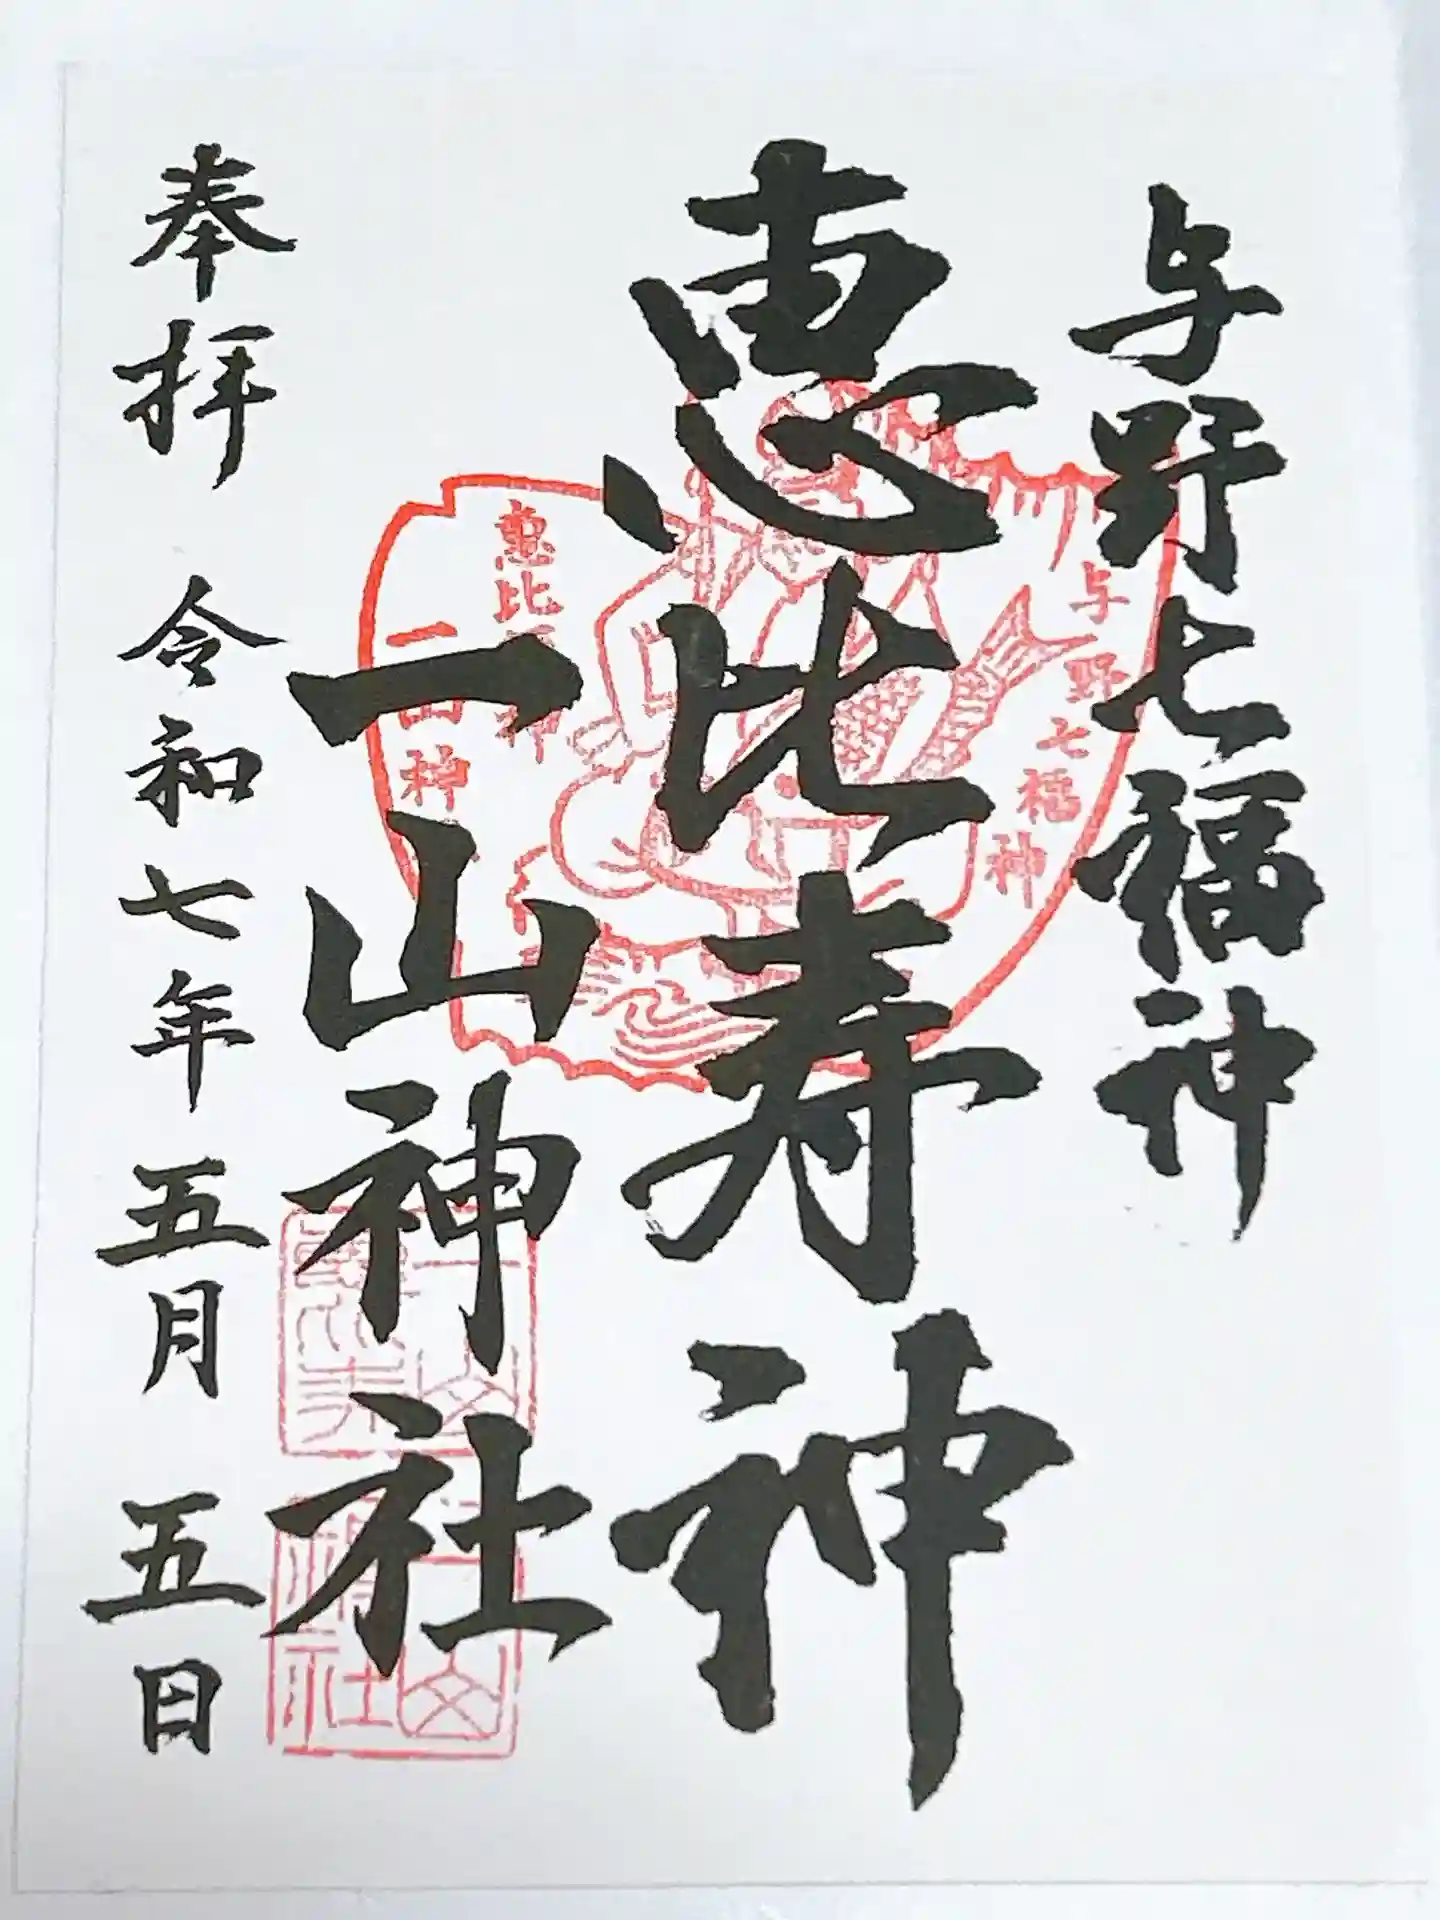 与野七福神
恵比寿神
一山神社
奉拝 令和七年五月五日
与野七福神
恵比
神